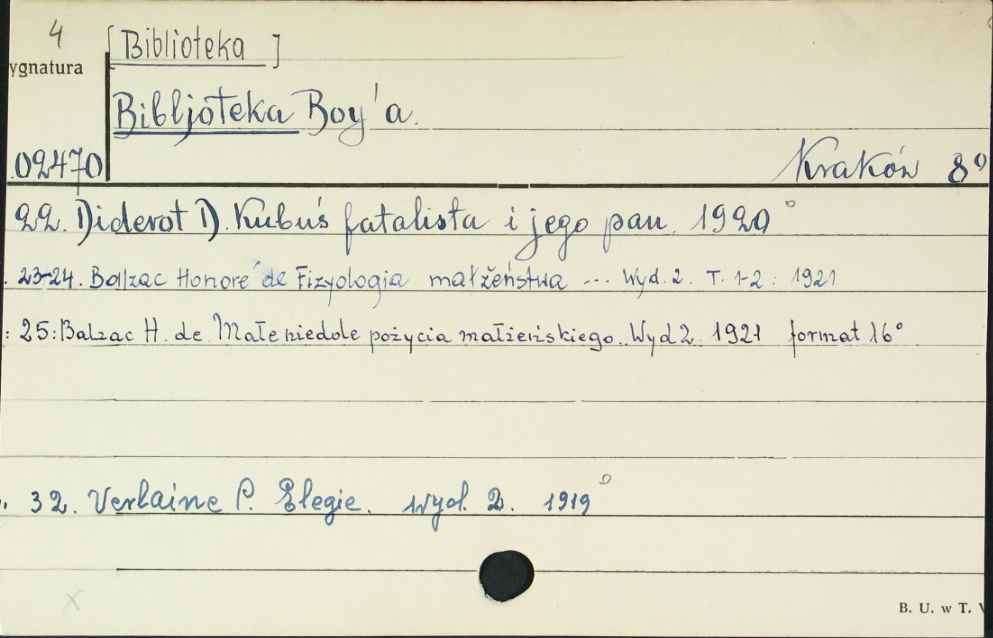 4
[Biblioteka]
ygnatura
Bibljoteka Boy'a.
02470
Kraków 8°
22. Diderot D. Kubuś fatalista i jego pan. 1920°
. 23-24. Balzac Honoré de Fizyologia małżeństwa ... Wyd. 2. T. 1-2: 1921
: 25: Balzac H. de Małe niedole pożycia małżeńskiego. Wyd 2. 1921 format 16°
. 32. Verlaine P. Elegie. wyd. 2. 1919°
x
B. U. w T.